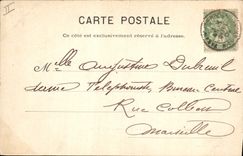 II
CARTE POSTALE
Ce côté est exclusivement réservé à l'adresse.
Melle Augustine Dubreuil
dame Téléphoniste, Bureau Central
Rue Colbert
Marseille